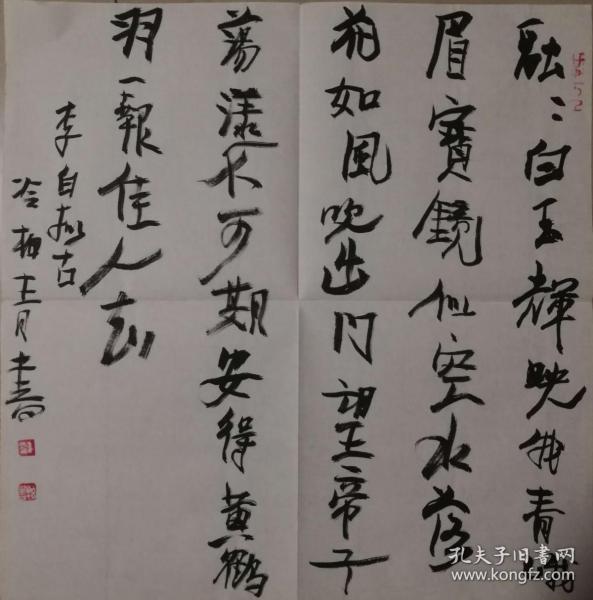 融〻白玉輝映我青蛾
眉寶鏡似空水落
花如風吹出门望帝子
蕩漾不可期安得黄鶴
羽一報佳人知
李白拟古
書
孔夫子旧书网
www.kongfz.com